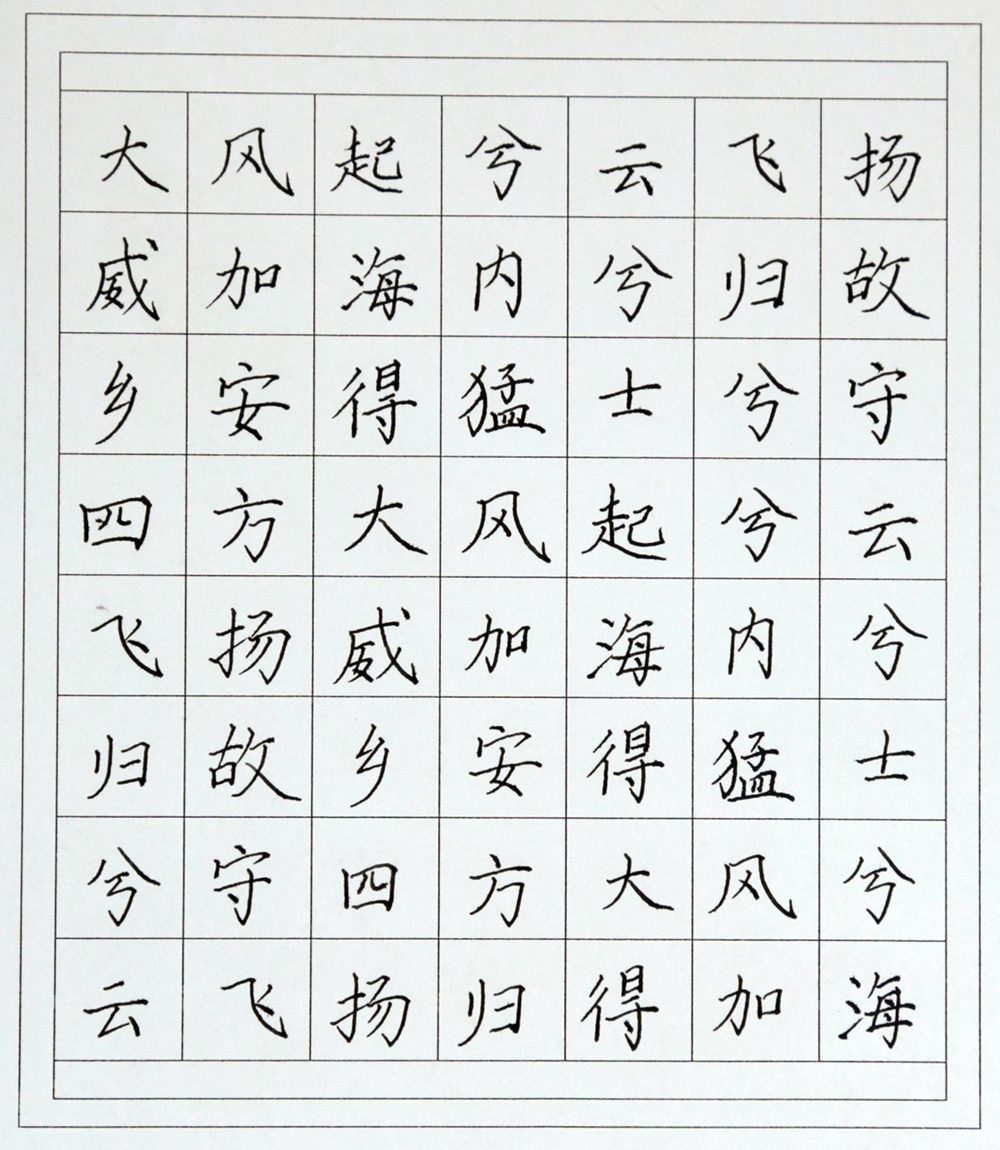 大风起兮云飞扬
威加海内兮归故
乡安得猛士兮守
四方大风起兮云
飞扬威加海内兮
归故乡安得猛士
兮守四方大风兮
云飞扬归得加海